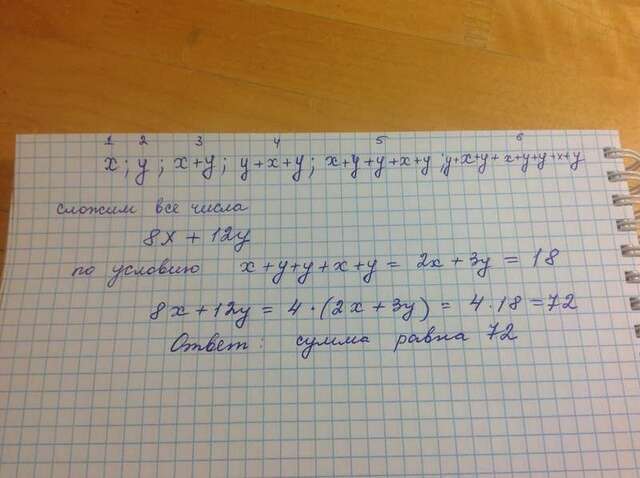 1 2 3 4 5 6
x; y; x+y; y+x+y; x+y+y+x+y; y+x+y+x+y+y+x+y
сложим все числа
8x + 12y
по условию x+y+y+x+y = 2x+3y = 18
8x+12y = 4·(2x+3y) = 4·18=72
Ответ: сумма равна 72